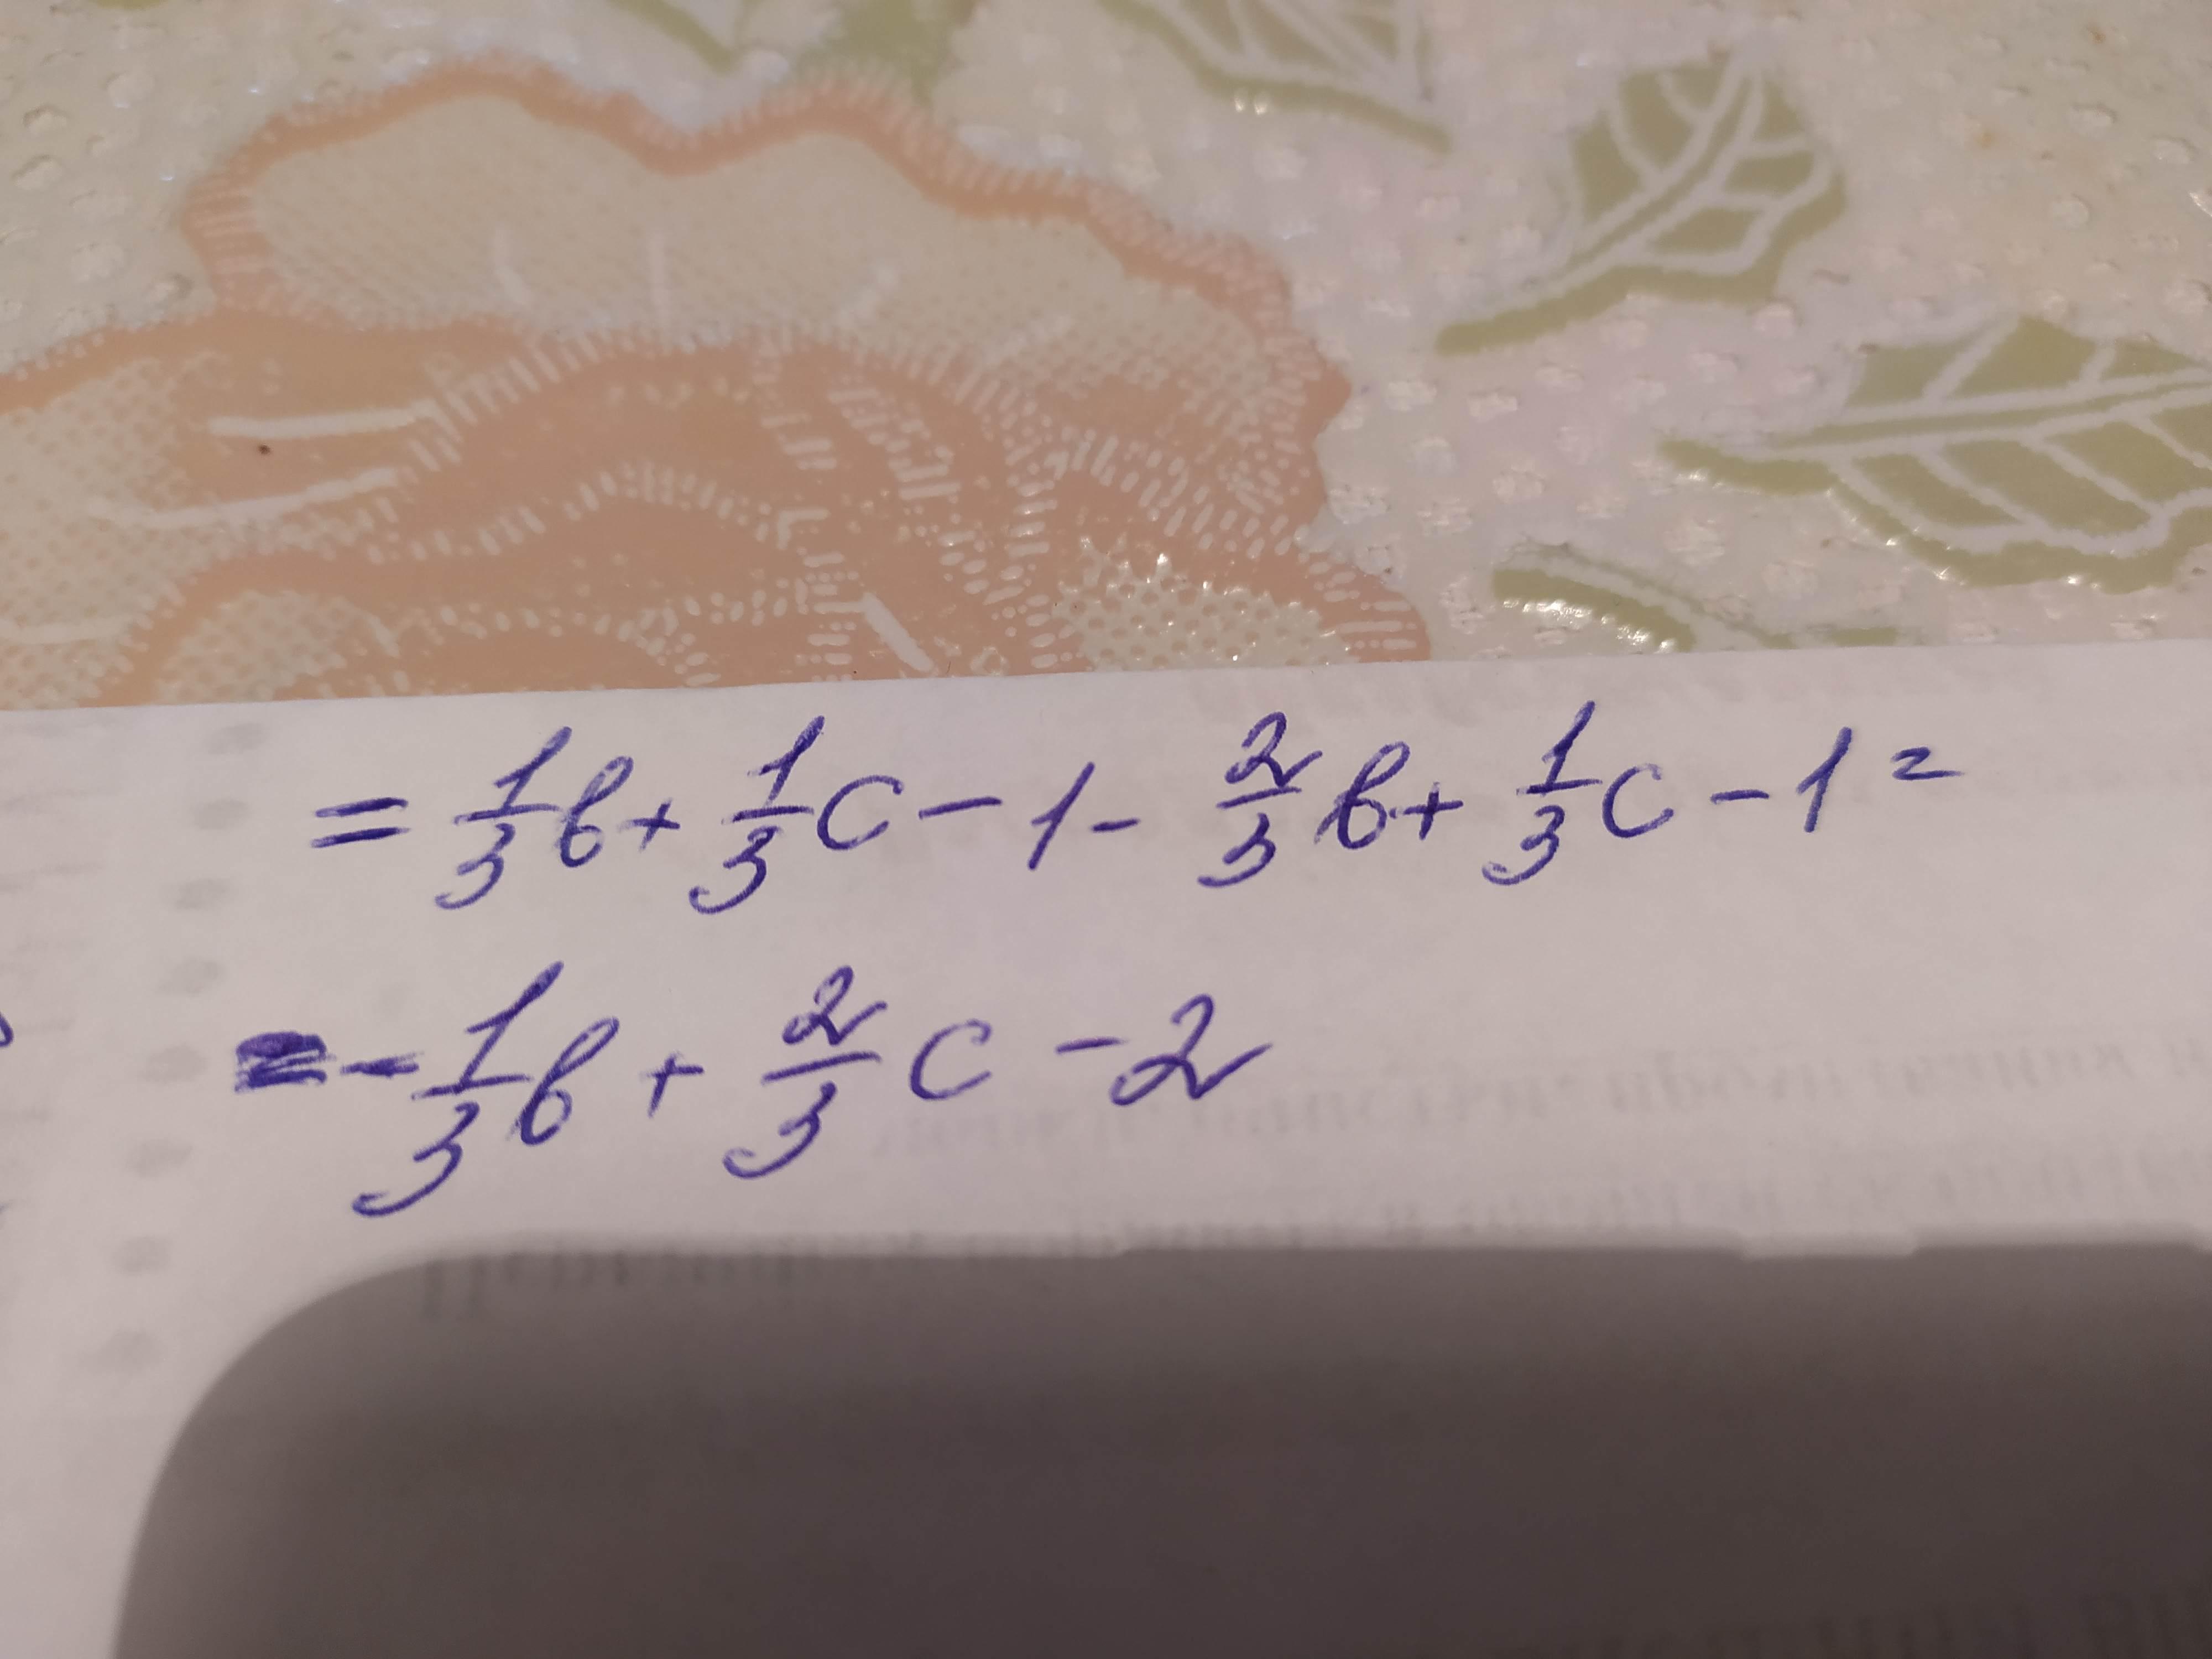 = 1/3 b + 1/3 c - 1 - 2/3 b + 1/3 c - 1 =
= - 1/3 b + 2/3 c - 2